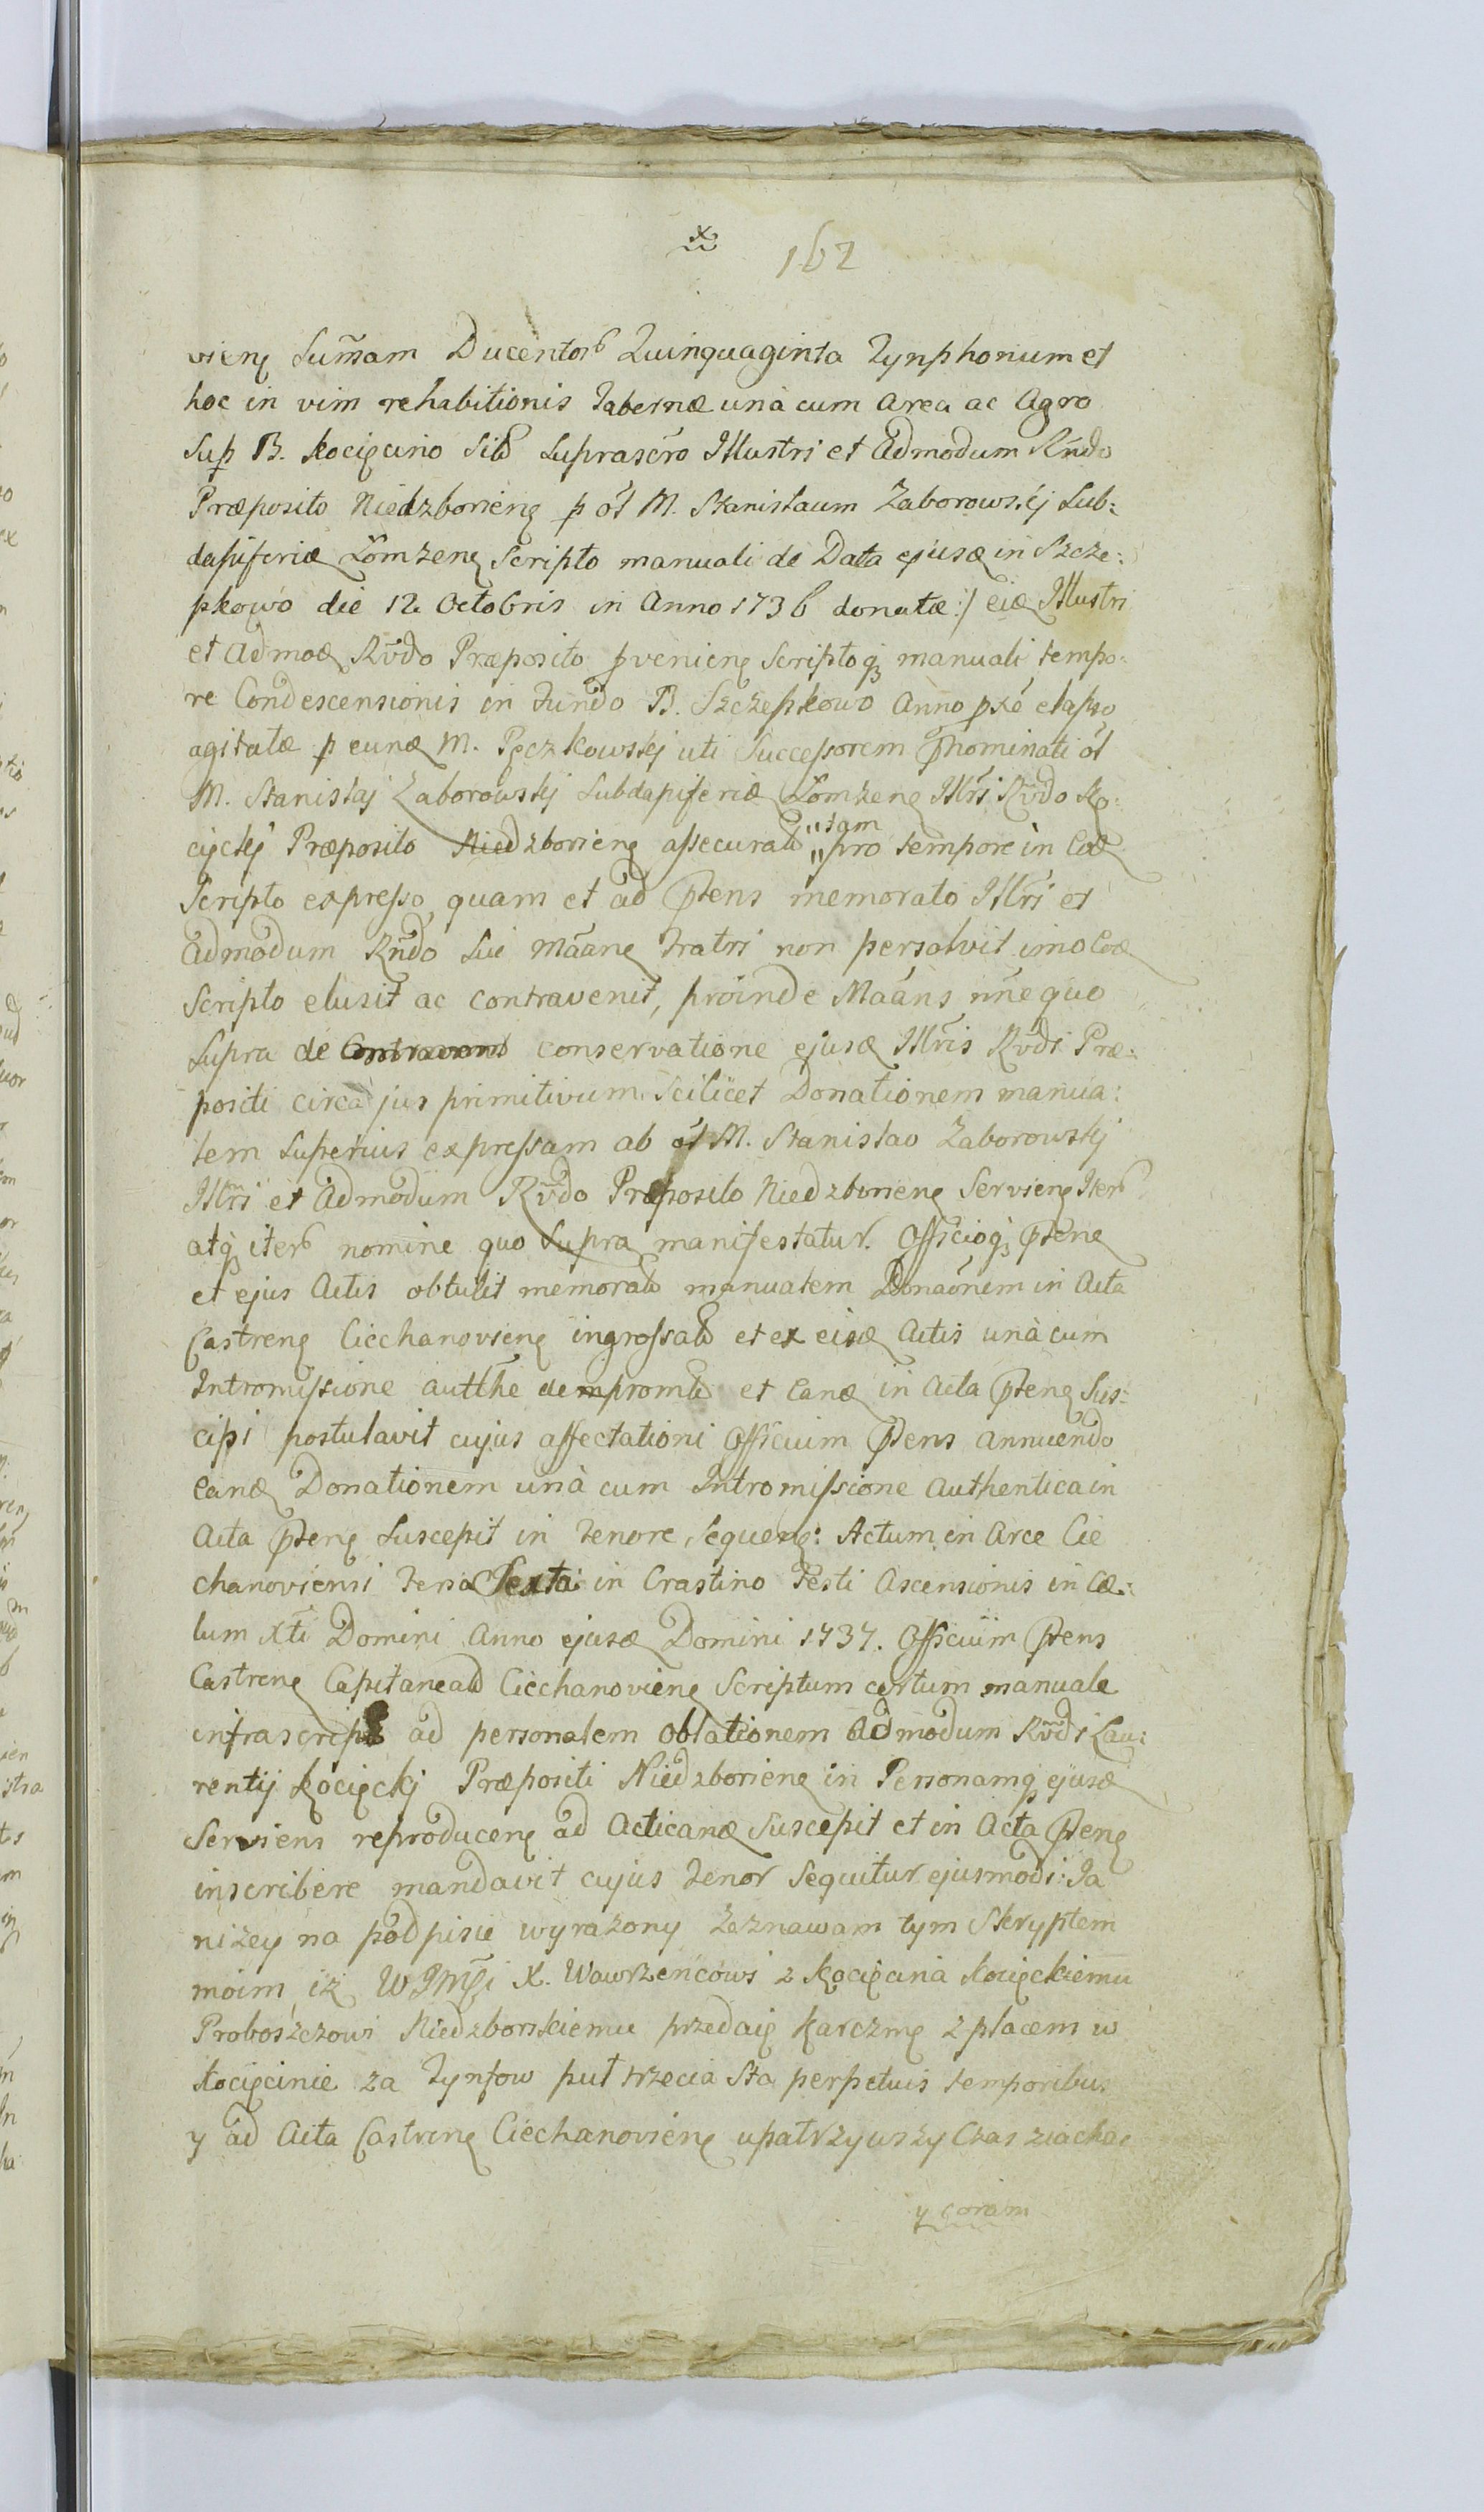 162
vienę Sum̃am Ducentorb Quinquaginta Tynphonum et
hoc in vim rehabitionis Tabernæ unà cum Area ac Agro
Sup B. Kocięcino Sitã Suprascro Illustri et Admodum Rndo
Præposito Niedzborienę p ol M. Stanislaum Zaborowskij Sub:
dapiferiæ Łomżenę Scripto manuali de Data ejusæ in Szcze:
pkowo die 12 Octobris in Anno 1736 donatæ:/ eiæ Illustri
et Admoæ Rvdo Præposito pvenienę Scriptoq manuali tempo:
re Condescensionis in Fundo B. Szczepkowo Anno pxe elapso
agitatæ p eunæ M. Pęczkowskij uti Successorem Pnominati ol
M. Stanislaj Zaborowskij Subdapiferiæ Łomżenę Illri Rvdo Ko:
cięckij Præposito Niedzborienę assecuratã „tam
„pro tempore in Eoæ
Scripto expresso, quam et ad Ptens memorato Illri et
Admodum Rndo Sui Maanę Fratri non persolvit imo Eoæ
Scripto elusit ac contravenit, proinde Maans nne quo
Supra de conservatione ejusæ Illris Rvdi Præ:
positi circa jus primitivum Scilicet Donationem manua:
lem Superius expressam ab ol M. Stanislao Zaborowskij
Illri et Admodum Rvdo Præposito Niedzborienę Servienę Iterb
atq iterb nomine quo Supra manifestatur. Officioq Ptenę
et ejus Actis obtulit memoratã manualem Donaonem in Acta
Castrenę Ciechanovienę ingrossatã et ex eisæ Actis unà cum
Intromissione autthe depromtã et Eanæ in Acta Ptenę Sus:
cipi postulavit cujus affectationi Officium Ptens annuendo
Eanæ Donationem unà cum Intromissione Authentica in
Acta Ptenę Suscepit in Tenore Sequenę: Actum in Arce Cie
chanoviensi Feria Sexta in Crastino Festi Ascensionis in Cæ:
lum Xti Domini Anno ejusæ Domini 1737. Officium Ptens
Castrenę Capitaneatã Ciechanovienę Scriptum certum manuale
infrascript ad personalem oblationem Admodum Rvdi Lau:
rentij Kocięckj Præpositi Niedzborienę in Personamq ejusæ
Serviens reproducenę ad Acticanæ Suscepit et in Acta Ptenę
inscribere mandavit cujus Tenor Sequitur ejusmodi: Ja
niżey na podpisie wyrażony zeznawam tym Skryptem
moim, iż WJMCi X. Wawrzeńcowi z Kocięcina Kocięckiemu
Proboszczowi Niedzborskiemu przedaię Karczmę z placem w
Kocięcinie za Tynfow puł trzecia Sta perpetuis temporibus
y ad Acta Castrenę Ciechanovienę upatrzywszy Czas ziachac
y coram